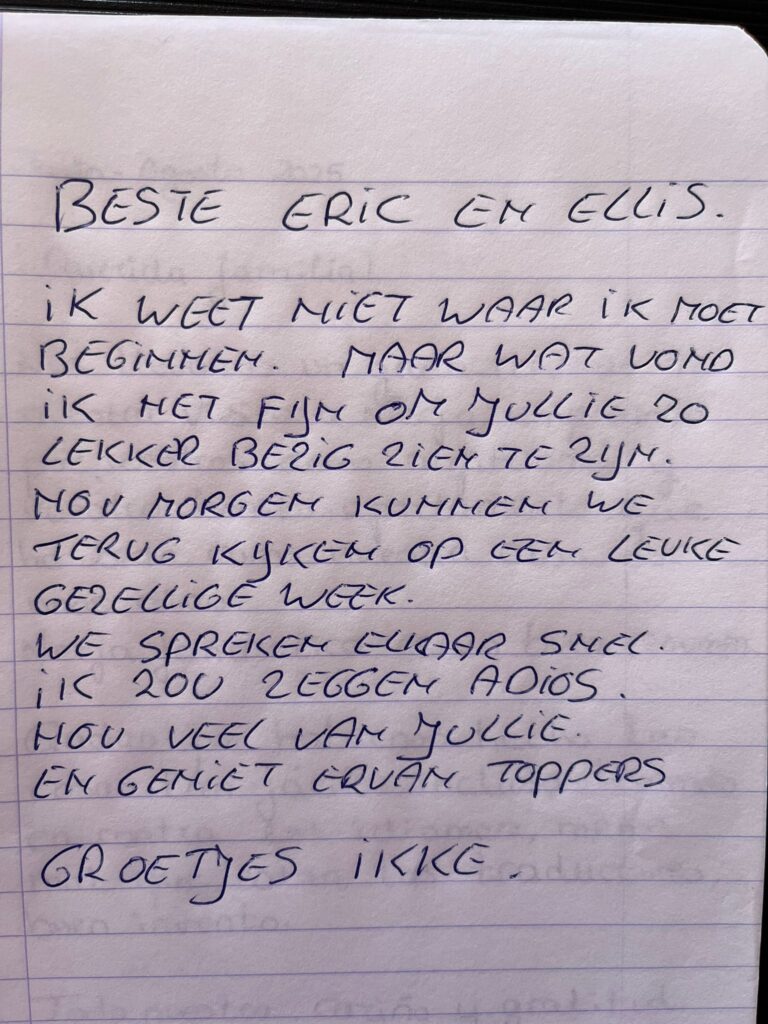 BESTE ERIC EN ELLIS.
IK WEET NIET WAAR IK MOET
BEGINNEN. MAAR WAT VOND
IK HET FIJN OM JULLIE ZO
LEKKER BEZIG ZIEN TE ZIJN.
NOU MORGEN KUNNEN WE
TERUG KIJKEN OP EEN LEUKE
GEZELLIGE WEEK.
WE SPREKEN ELKAAR SNEL.
IK ZOU ZEGGEN ADIOS.
HOU VEEL VAN JULLIE.
EN GENIET ERVAN TOPPERS
GROETJES IKKE.